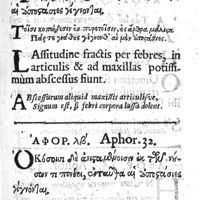 αἱ ἀποστάσιες γίγνονται.
Τοῖσι ἐν πυρετοῖσιν, ἐς ἄρθρα μάλιστα
αἱ
Lassitudine fractis per febres, in
articulis & ad maxillas potissi-
mùm abscessus fiunt.
Abscessurum aliquid maxillis articulisve,
Signum est, si febri corpora lassa dolent.
ΑΦΟΡ. λβʹ. Aphor. 32.
Ὁκόσοισι δὲ ἀνισταμένοισιν ἐκ τῶν νού-
σων τι πονέει, ἐνταῦθα αἱ ἀποστάσιες
γίγνονται.